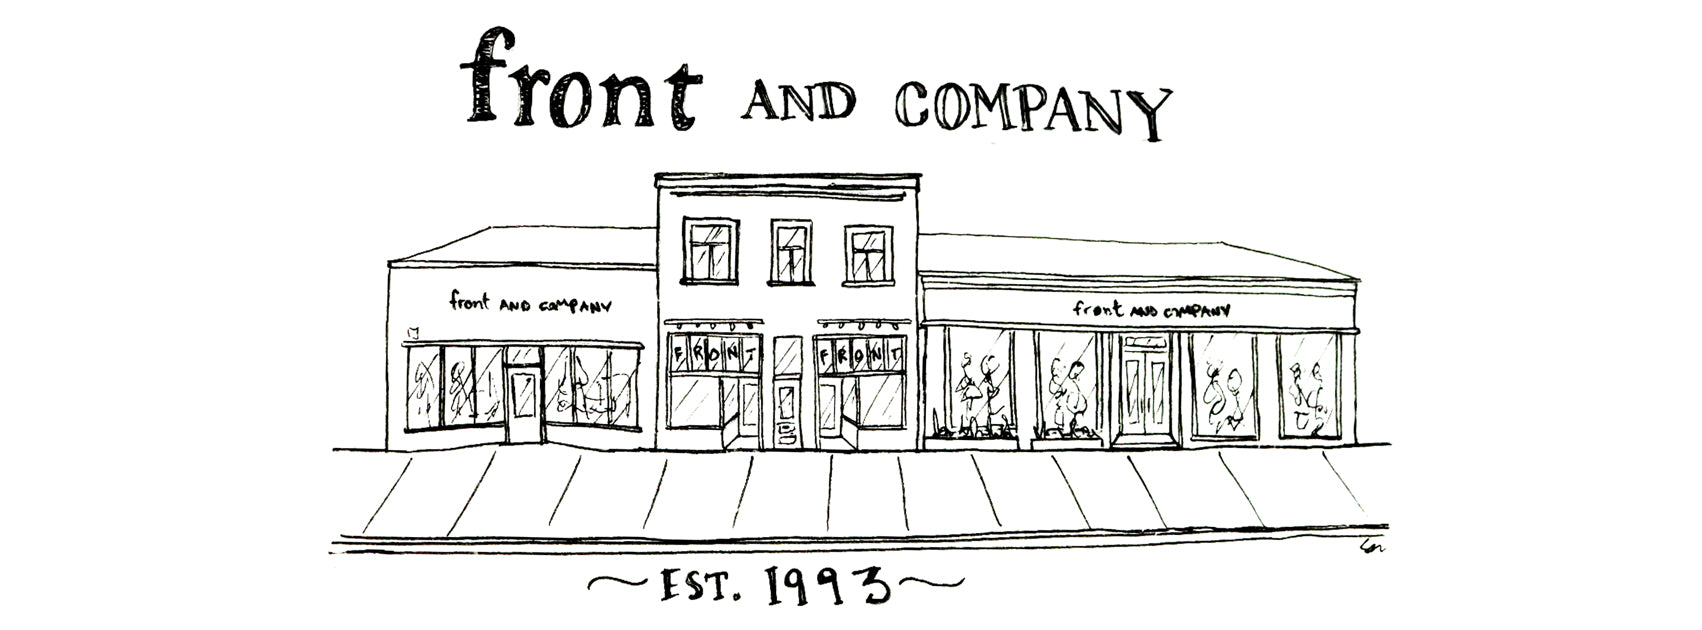 front AND COMPANY
front AND COMPANY
front AND COMPANY
FRONT
FRONT
EST. 1993